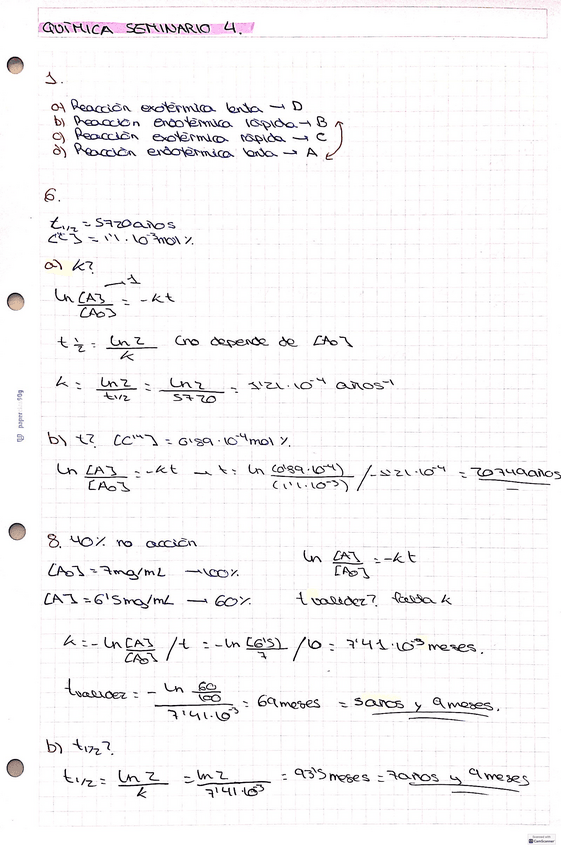 QUÍMICA SEMINARIO 4.
1.
a) Reacción exotérmica lenta → D
b) Reacción endotérmica rápida → B
c) Reacción exotérmica rápida → C
d) Reacción endotérmica lenta → A
6.
t1/2 = 5720 años
[C] = 1'1 · 10⁻³ mol %
a) k?
ln [A]/[A₀] = -kt → 1
t ½ = ln 2/k (no depende de [A₀]
k = ln 2/t1/2 = ln 2/5720 = 1'21 · 10⁻⁴ años⁻¹
b) t? [C¹⁴] = 0'89 · 10⁻⁴ mol %
ln [A]/[A₀] = -kt → t = ln (0'89 · 10⁻⁴)/(1'1 · 10⁻³) / -1'21 · 10⁻⁴ = 20749 años
8. 40% no acción
ln [A]/[A₀] = -kt
[A₀] = 7mg/mL → 100%
[A] = 6'5mg/mL → 60%
t validez? falta k
k = -ln [A]/[A₀] / t = -ln (6'5)/7 / 10 = 7'41 · 10⁻³ meses.
t validez = - ln 60/100 / 7'41 · 10⁻³ = 69 meses = 5 años y 9 meses.
b) t1/2?
t1/2 = ln 2/k = ln 2/7'41 · 10⁻³ = 93'5 meses = 7 años y 9 meses
CamScanner